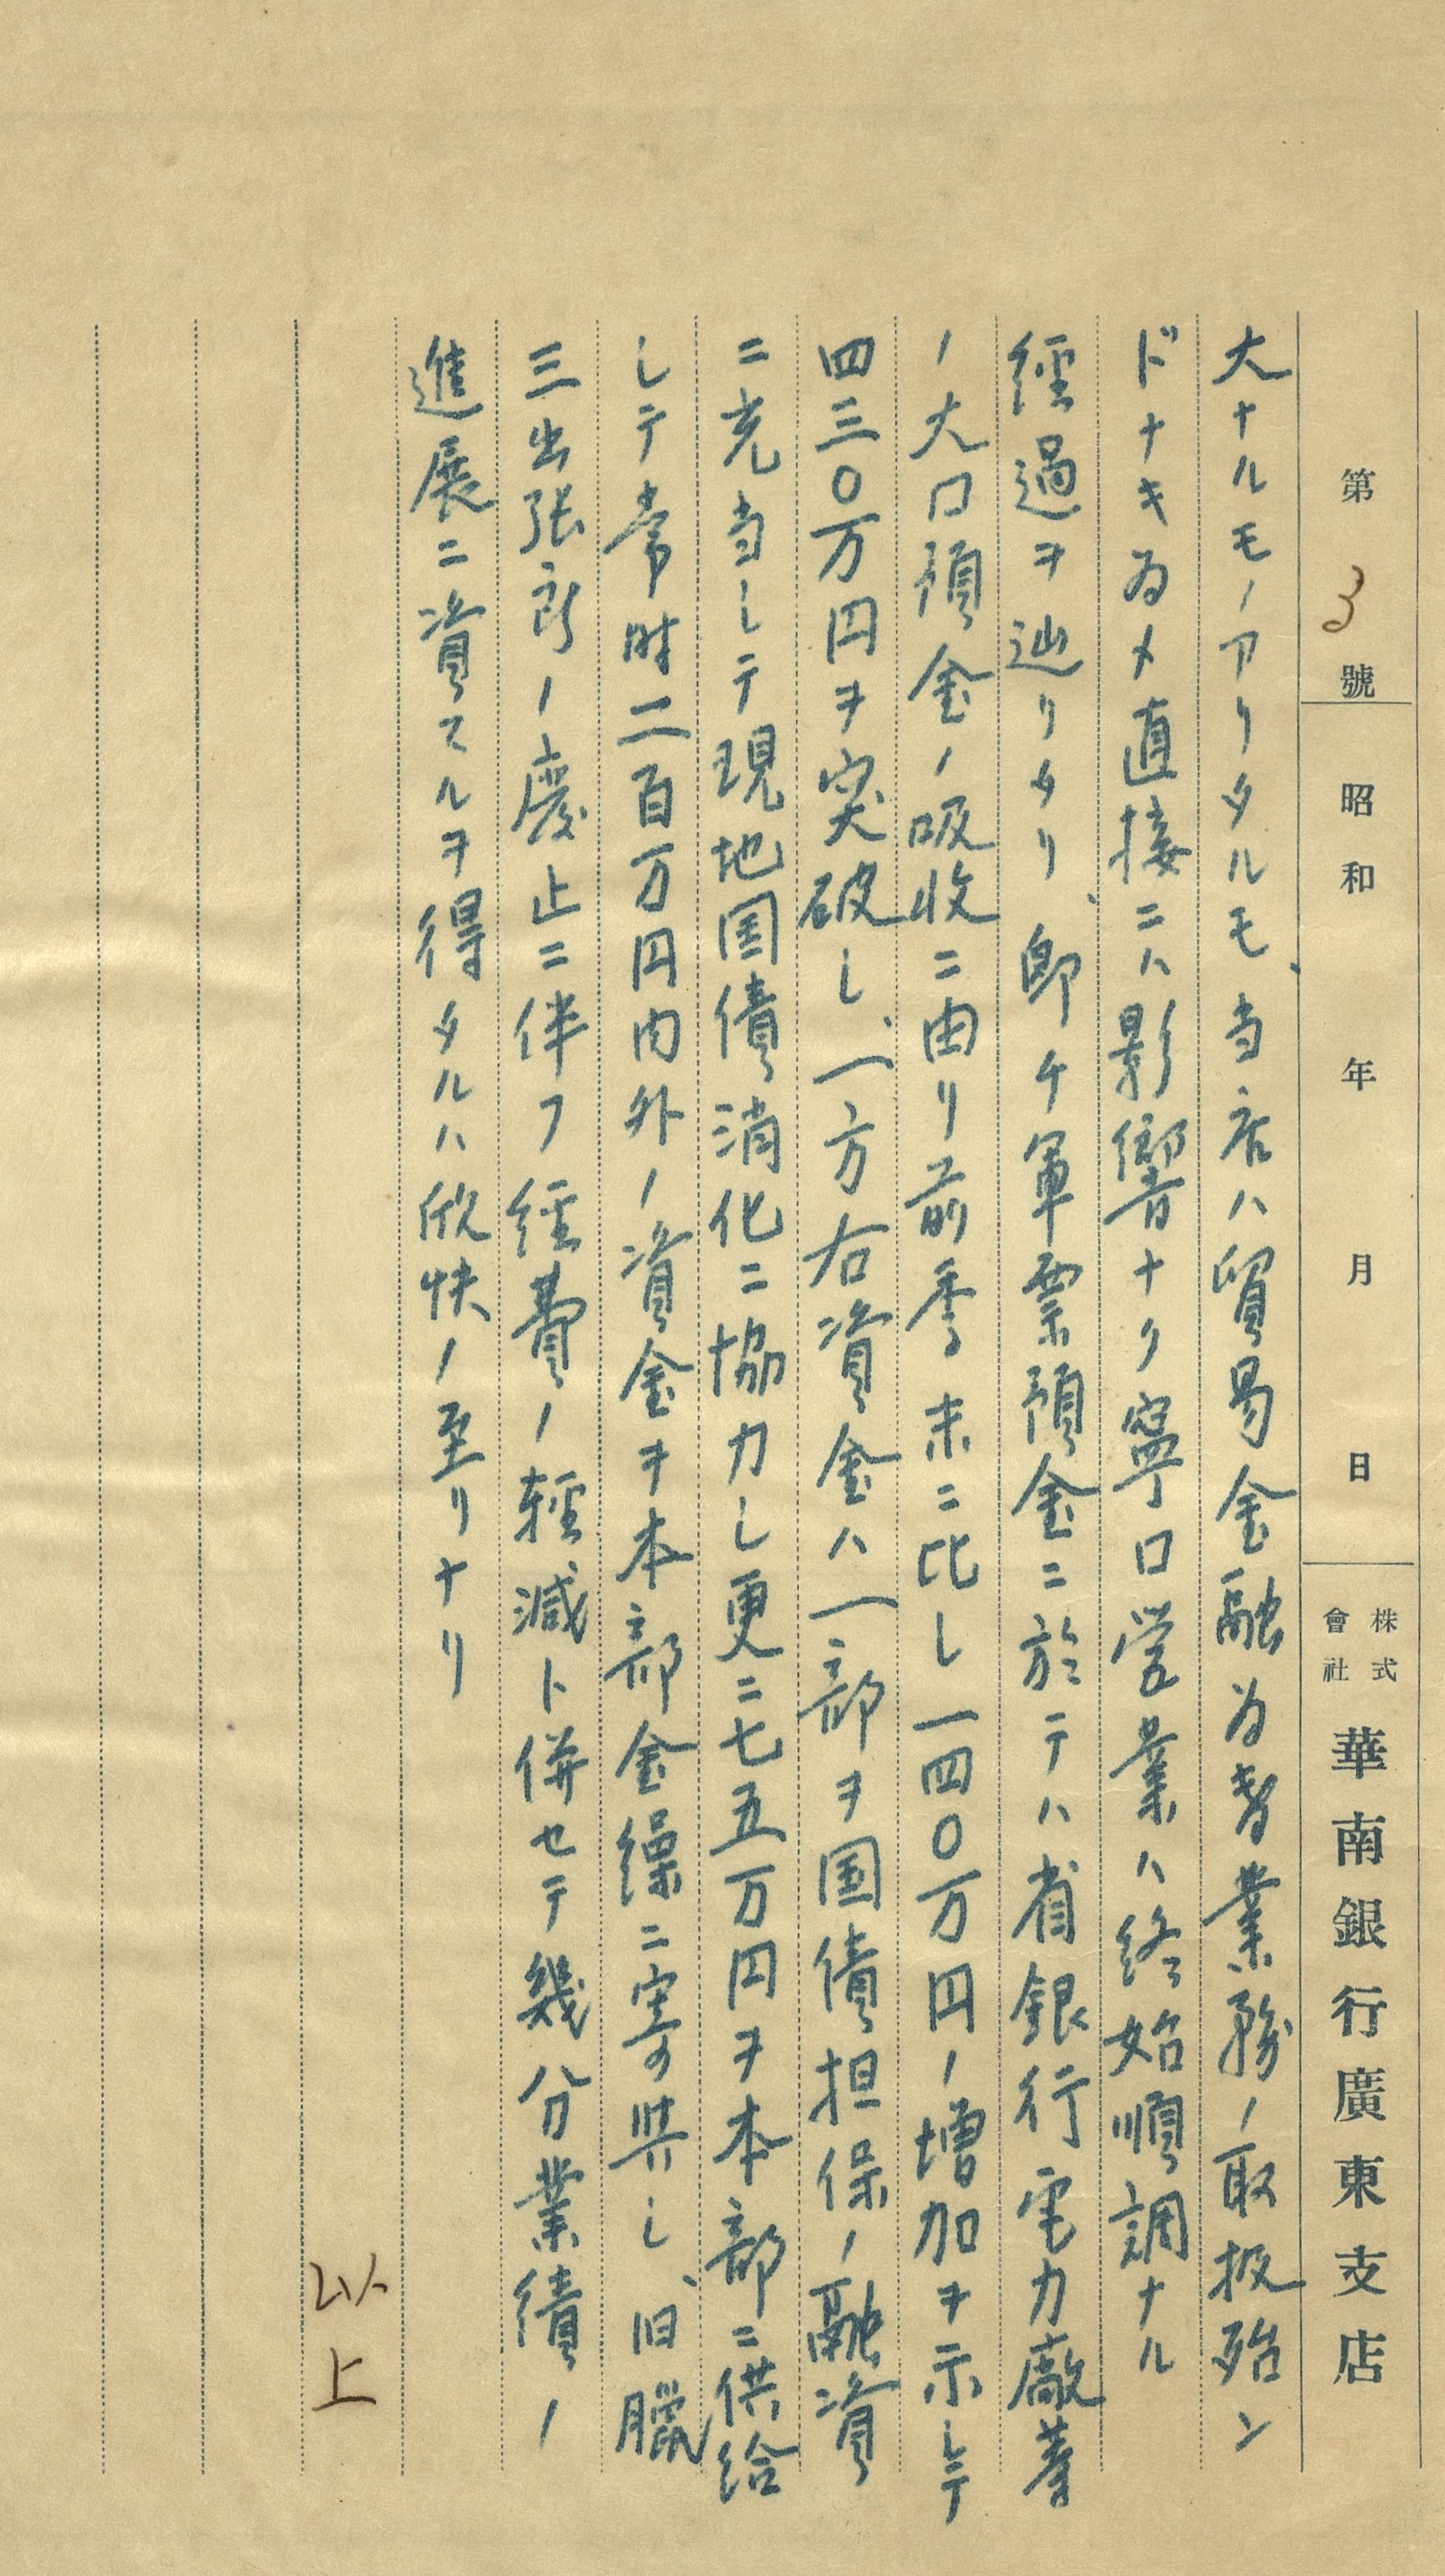 第 3 號 昭和 年 月 日 株式會社 華南銀行廣東支店
大ナルモノアリタルモ、当店ハ貿易金融為替業務ノ取扱殆ン
ドナキ為メ直接ニハ影響ナク寧ロ営業ハ終始順調ナル
經過ヲ辿リタリ、即チ軍票預金ニ於テハ省銀行電力廠等
ノ大口預金ノ吸收ニ由リ前季末ニ比シ一四〇万円ノ増加ヲ示シテ
四三〇万円ヲ突破シ、一方右資金ハ一部ヲ国債担保ノ融資
ニ充当シテ現地国債消化ニ協力シ更ニ七五万円ヲ本部ニ供給
シテ常時二百万円内外ノ資金ヲ本部金繰ニ寄与シ、旧臘
三出張所ノ廢止ニ伴フ經費ノ輕減ト併セテ幾分業績ノ
進展ニ資スルヲ得タルハ欣快ノ至リナリ
以上